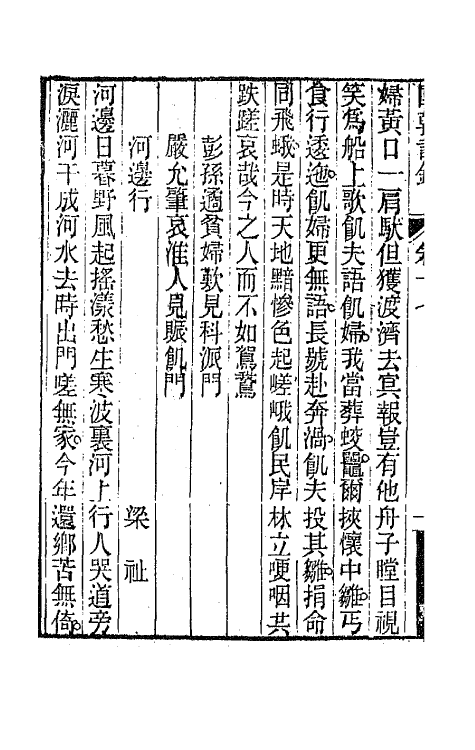 婦黃口一肩馱但獲渡濟去寘報豈有他舟子瞠目視
笑為船上歌飢夫語飢婦我當葬蛟鼉爾挾懷中雛丐
食行逶迤飢婦更無語長號赴奔渦飢夫投其雛捐命
同飛蛾是時天地黯慘色起嵯峨飢民岸林立哽咽共
跌蹉哀哉今之人而不如駕鵞
彭孫遹貧婦歎見科派門
嚴允肇哀淮人見賑飢門
河邊行
梁祉
河邊日暮野風起搖漾愁生寒波裏河上行人哭道旁
淚灑河干成河水去時出門嗟無家今年還鄉苦無倚